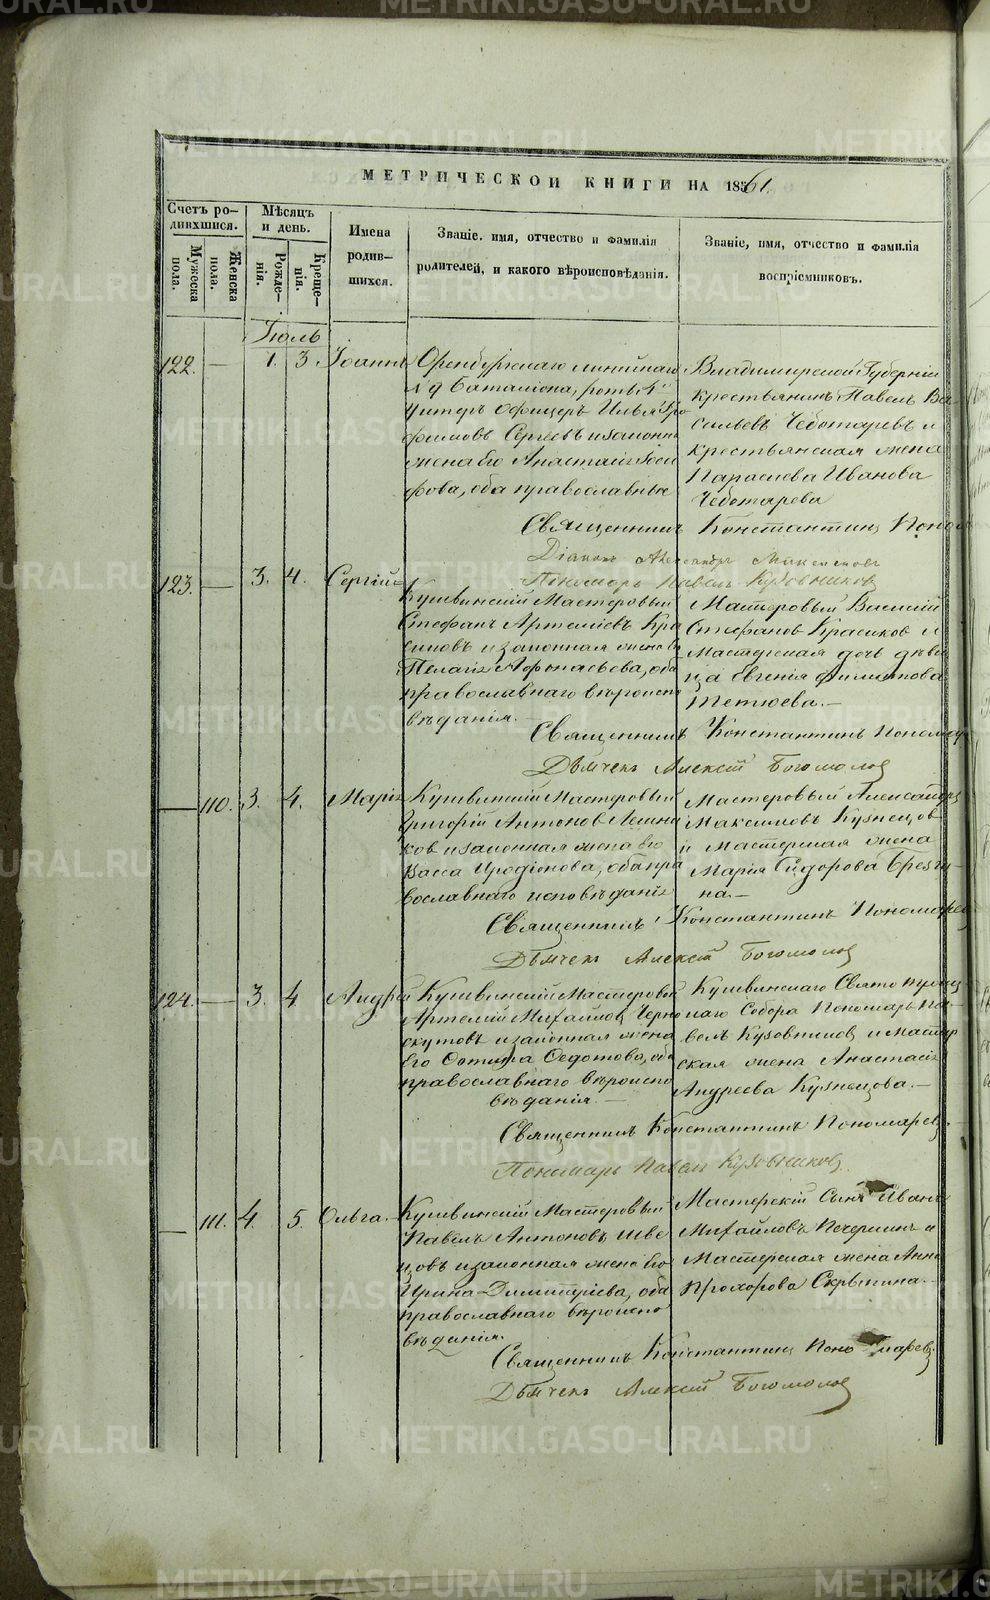 METRIKI.GASO-URAL.RU
МЕТРИЧЕСКОЙ КНИГИ НА 1861.
Счетъ ро-
дившихся.
Мужеска
пола.
Женска
пола.
Мѣсяцъ
и день.
Рожде-
нія.
Креще-
нія.
Имена
родив-
шихся.
Званіе, имя, отчество и фамилія
родителей, и какого вѣроисповѣданія.
Званіе, имя, отчество и фамилія
воспріемниковъ.
Іюль
122. — 1. 3 Іоаннъ
Оренбургскаго линейнаго
Баталіона, роты
Унтеръ Офицеръ Илья Тро
фимовъ Сергеевъ и законная
жена его Анастасія Іоси
фова, оба православные
Владимирской Губерніи
крестьянинъ Павелъ Ва
сильевъ Чеботаревъ и
крестьянская жена
Параскева Иванова
Чеботарева
Священникъ Константинъ
Діаконъ Александръ
Пономарь Павелъ Кузовниковъ
123. — 3. 4. Сергій
Кушвинскій Мастеровый
Стефанъ Артеміевъ Кра
сиковъ и законная жена
Пелагія Афонасьева, оба
православнаго вѣроиспо
вѣданія.
Мастеровый Василій
Стефановъ Красиковъ и
Мастерская дочь дѣви
ца Евгенія Филипова
Тетюева.—
Священникъ Константинъ
Дьячекъ Алексій Богомолов
— 110. 3. 4. Марія
Кушвинскій Мастеровый
Григорій Антоновъ
ковъ и законная жена его
Васса Иродіонова, оба пра
вославнаго исповѣданія
Мастеровый Александръ
Максимовъ Кузнецов
и Мастерская жена
Марія Сидорова Брезги-
на.—
Священникъ Константинъ Пономаревъ
Дьячекъ Алексій Богомолов
124. — 3. 4 Андрей
Кушвинскій Мастеровый
Артемій Михайлов Черно
скутовъ и законная жена
его Федотова, оба
православнаго вѣроиспо
вѣданія.—
Кушвинскаго Свято Троиц
каго Собора Пономарь Па-
велъ Кузовников и Мастер
ская жена Анастасія
Андреева Кузнецова.—
Священникъ Константинъ Пономаревъ
Пономарь Павелъ Кузовников
— 111. 4. 5. Ольга.
Кушвинскій Мастеровый
Павелъ Антоновъ Шве
цовъ и законная жена его
Ирина Димитріева, оба
православнаго вѣроиспо
вѣданія.
Мастерскій Сынъ Иванъ
Михайловъ Печеркинъ и
Мастерская жена Анна
Прохорова
Священникъ Константинъ Пономаревъ
Дьячекъ Алексій Богомолов